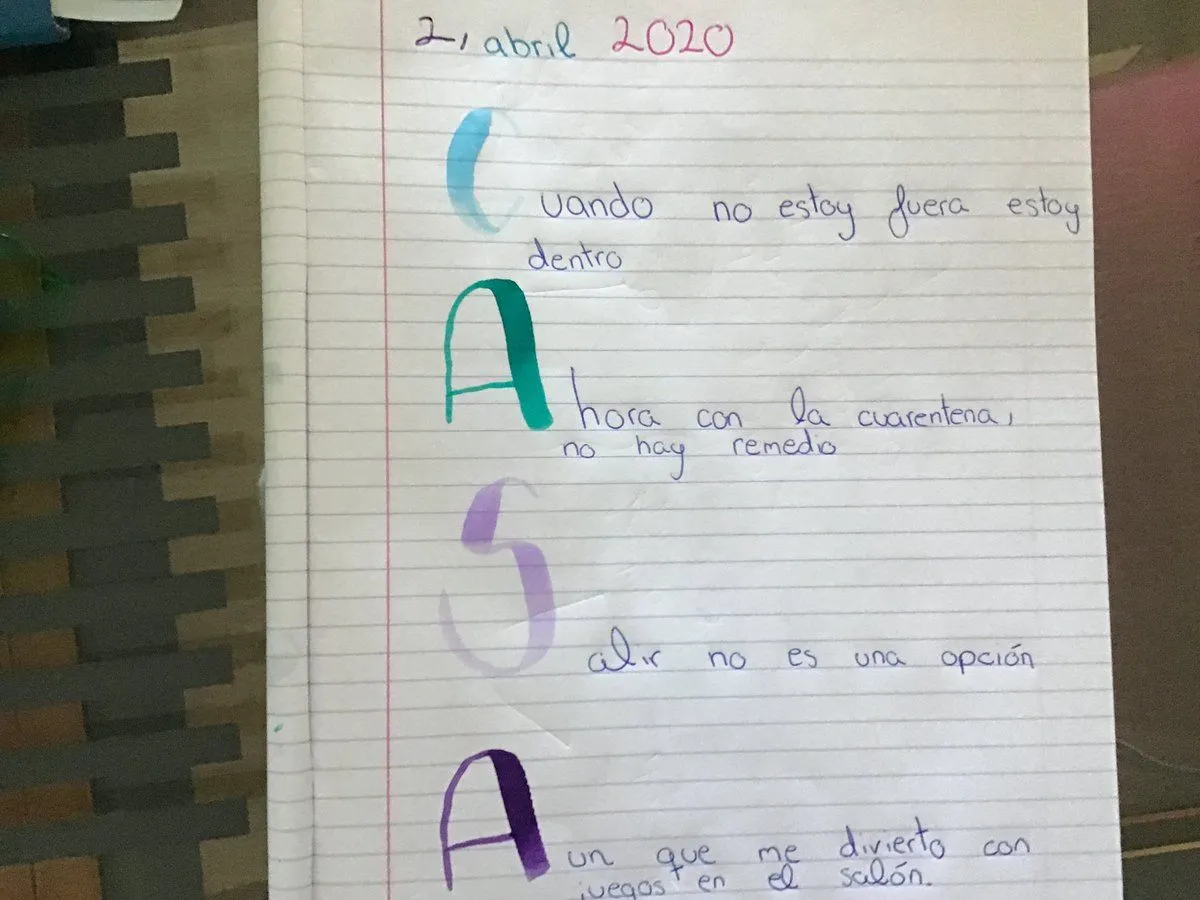 2, abril 2020
Cuando no estoy fuera estoy
dentro
Ahora con la cuarentena,
no hay remedio
Salir no es una opción
Aun que me divierto con
juegos en el salón.